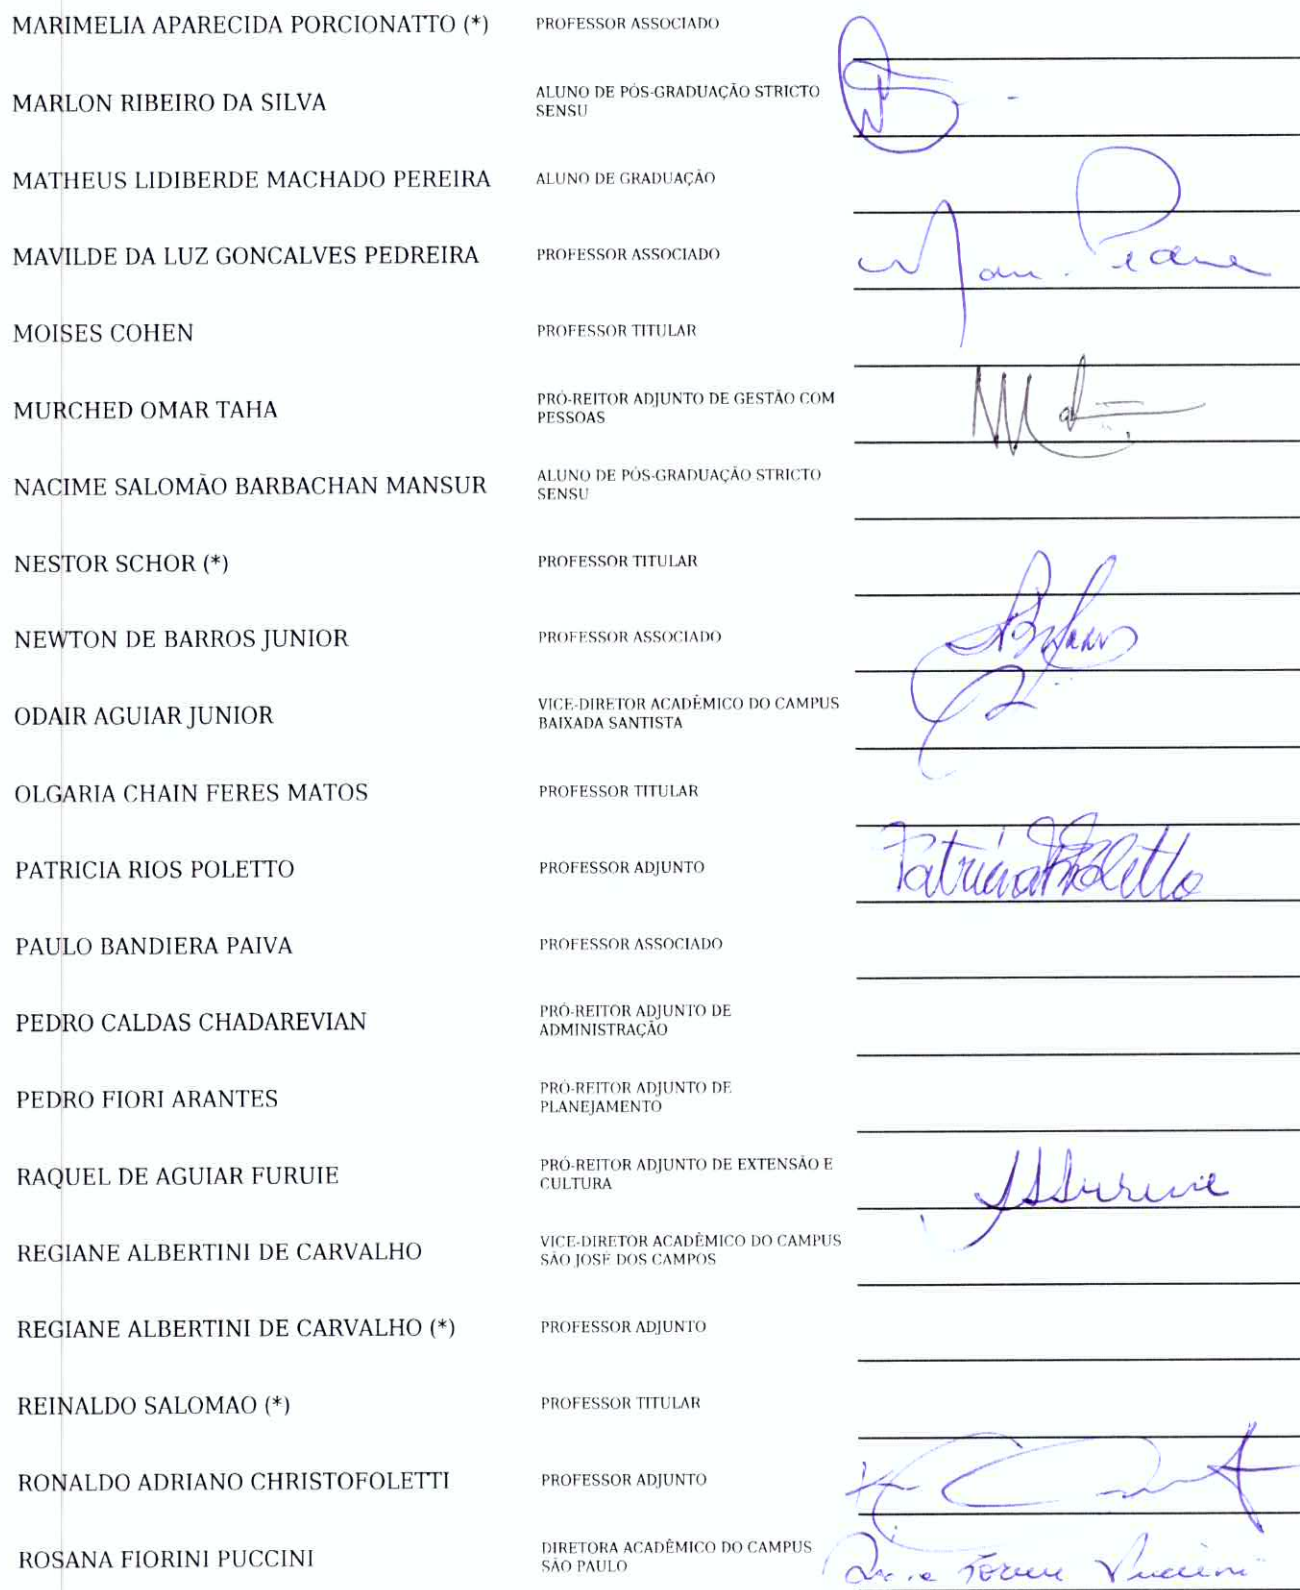 MARIMELIA APARECIDA PORCIONATTO (*) PROFESSOR ASSOCIADO
MARLON RIBEIRO DA SILVA ALUNO DE PÓS-GRADUAÇÃO STRICTO
SENSU
MATHEUS LIDIBERDE MACHADO PEREIRA ALUNO DE GRADUAÇÃO
MAVILDE DA LUZ GONCALVES PEDREIRA PROFESSOR ASSOCIADO
MOISES COHEN PROFESSOR TITULAR
MURCHED OMAR TAHA PRÓ-REITOR ADJUNTO DE GESTÃO COM
PESSOAS
NACIME SALOMÃO BARBACHAN MANSUR ALUNO DE PÓS-GRADUAÇÃO STRICTO
SENSU
NESTOR SCHOR (*) PROFESSOR TITULAR
NEWTON DE BARROS JUNIOR PROFESSOR ASSOCIADO
ODAIR AGUIAR JUNIOR VICE-DIRETOR ACADÊMICO DO CAMPUS
BAIXADA SANTISTA
OLGARIA CHAIN FERES MATOS PROFESSOR TITULAR
PATRICIA RIOS POLETTO PROFESSOR ADJUNTO Patrícia Poletto
PAULO BANDIERA PAIVA PROFESSOR ASSOCIADO
PEDRO CALDAS CHADAREVIAN PRÓ-REITOR ADJUNTO DE
ADMINISTRAÇÃO
PEDRO FIORI ARANTES PRÓ-REITOR ADJUNTO DE
PLANEJAMENTO
RAQUEL DE AGUIAR FURUIE PRÓ-REITOR ADJUNTO DE EXTENSÃO E
CULTURA
REGIANE ALBERTINI DE CARVALHO VICE-DIRETOR ACADÊMICO DO CAMPUS
SÃO JOSÉ DOS CAMPOS
REGIANE ALBERTINI DE CARVALHO (*) PROFESSOR ADJUNTO
REINALDO SALOMAO (*) PROFESSOR TITULAR
RONALDO ADRIANO CHRISTOFOLETTI PROFESSOR ADJUNTO
ROSANA FIORINI PUCCINI DIRETORA ACADÊMICO DO CAMPUS
SÃO PAULO